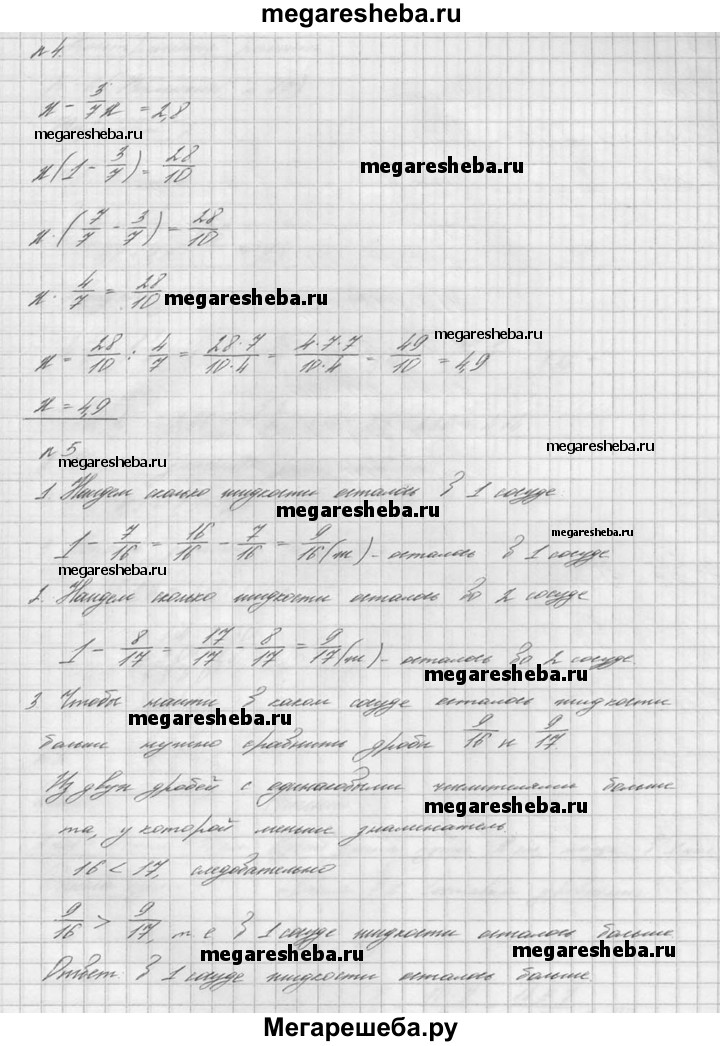 megaresheba.ru
n 4.
x - 3/7 x = 2,8
megaresheba.ru
x (1 - 3/7) = 28/10
megaresheba.ru
x · (7/7 - 3/7) = 28/10
x · 4/7 = 28/10
megaresheba.ru
x = 28/10 : 4/7 = 28·7/10·4 = 4·7·7/10·4 = 49/10 = 4,9
megaresheba.ru
x = 4,9
n 5
megaresheba.ru
megaresheba.ru
1 Найдем сколько жидкости осталось в 1 сосуде.
megaresheba.ru
1 - 7/16 = 16/16 - 7/16 = 9/16 (т) - осталось в 1 сосуде
megaresheba.ru
megaresheba.ru
2. Найдем сколько жидкости осталось во 2 сосуде
1 - 8/17 = 17/17 - 8/17 = 9/17 (т) - осталось во 2 сосуде.
megaresheba.ru
3 Чтобы найти в каком сосуде осталось жидкости
megaresheba.ru
больше нужно сравнить дроби 9/16 и 9/17
Из двух дробей с одинаковыми числителями больше
megaresheba.ru
та, у которой меньше знаменатель.
16 < 17, следовательно
9/16 > 9/17 т е в 1 сосуде жидкости осталось больше
megaresheba.ru
megaresheba.ru
Ответ: в 1 сосуде жидкости осталось больше.
Мегарешеба.ру